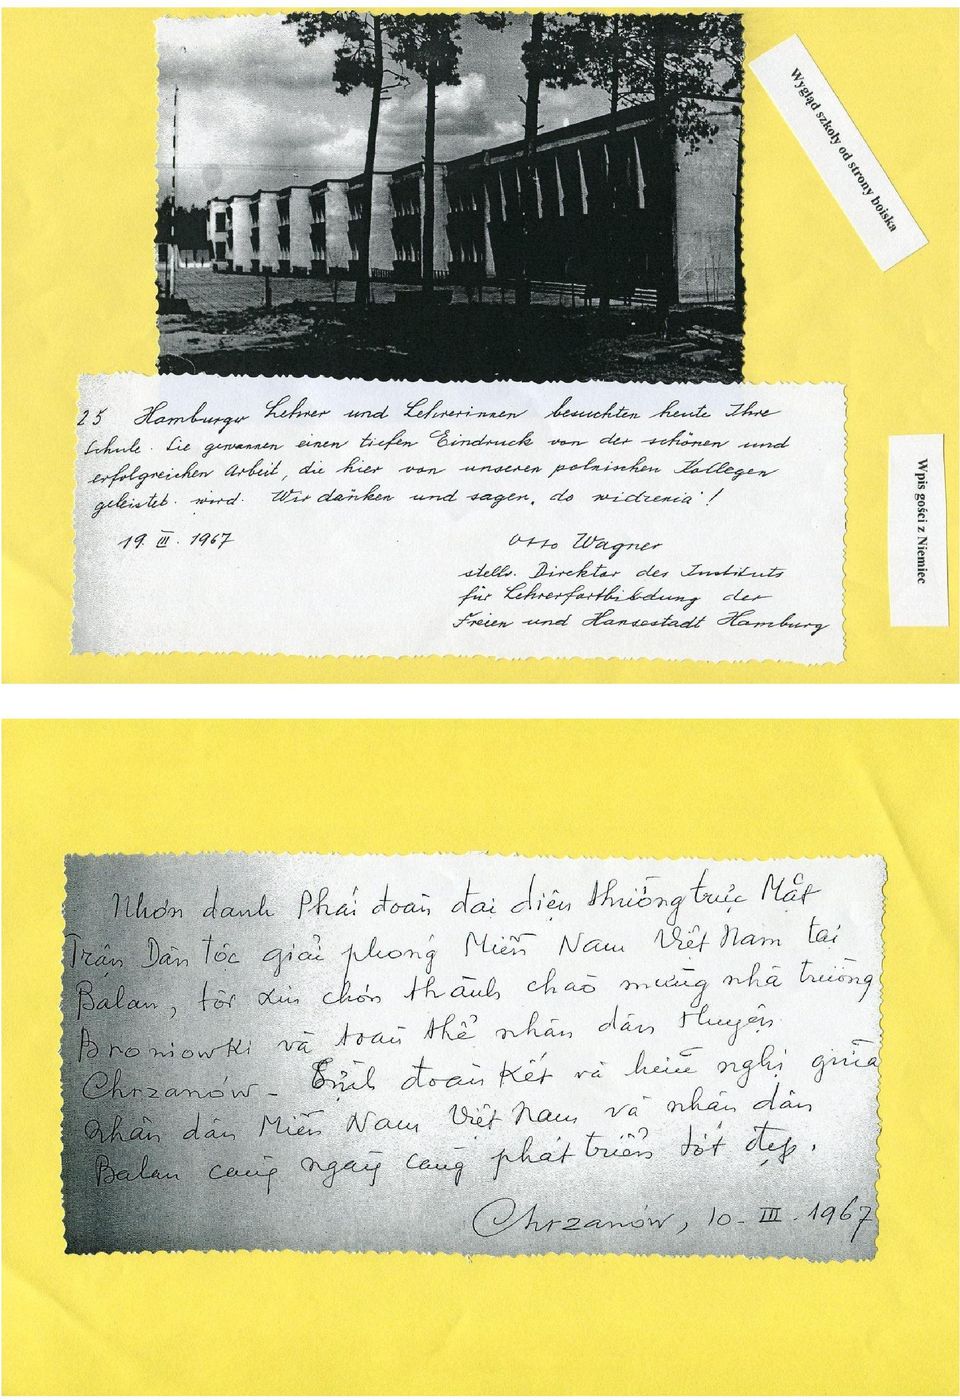 Wygląd szkoły od strony boiska
25 Hamburger Lehrer und Lehrerinnen besuchten heute Ihre
Schule. Sie gewannen einen tiefen Eindruck von der schönen und
erfolgreichen Arbeit, die hier von unseren polnischen Kollegen
geleistet wird. Wir danken und sagen, do widzenia!
19. III. 1967 Otto Wagner
stellv. Direktor des Instituts
für Lehrerfortbildung der
Freien und Hansestadt Hamburg
Wpis gości z Niemiec
Nhơn danh Phái đoàn đại diện thường trực Mặt
Trận Dân tộc giải phóng Miền Nam Việt Nam tại
Balan, tôi xin chơn thành chào mừng nhà trường
Broniowki và toàn thể nhân dân Huyện
Chrzanów - Tình đoàn kết và hữu nghị giữa
nhân dân Miền Nam Việt Nam và nhân dân
Balan càng ngày càng phát triển tốt đẹp.
Chrzanów, 10 - III - 1967